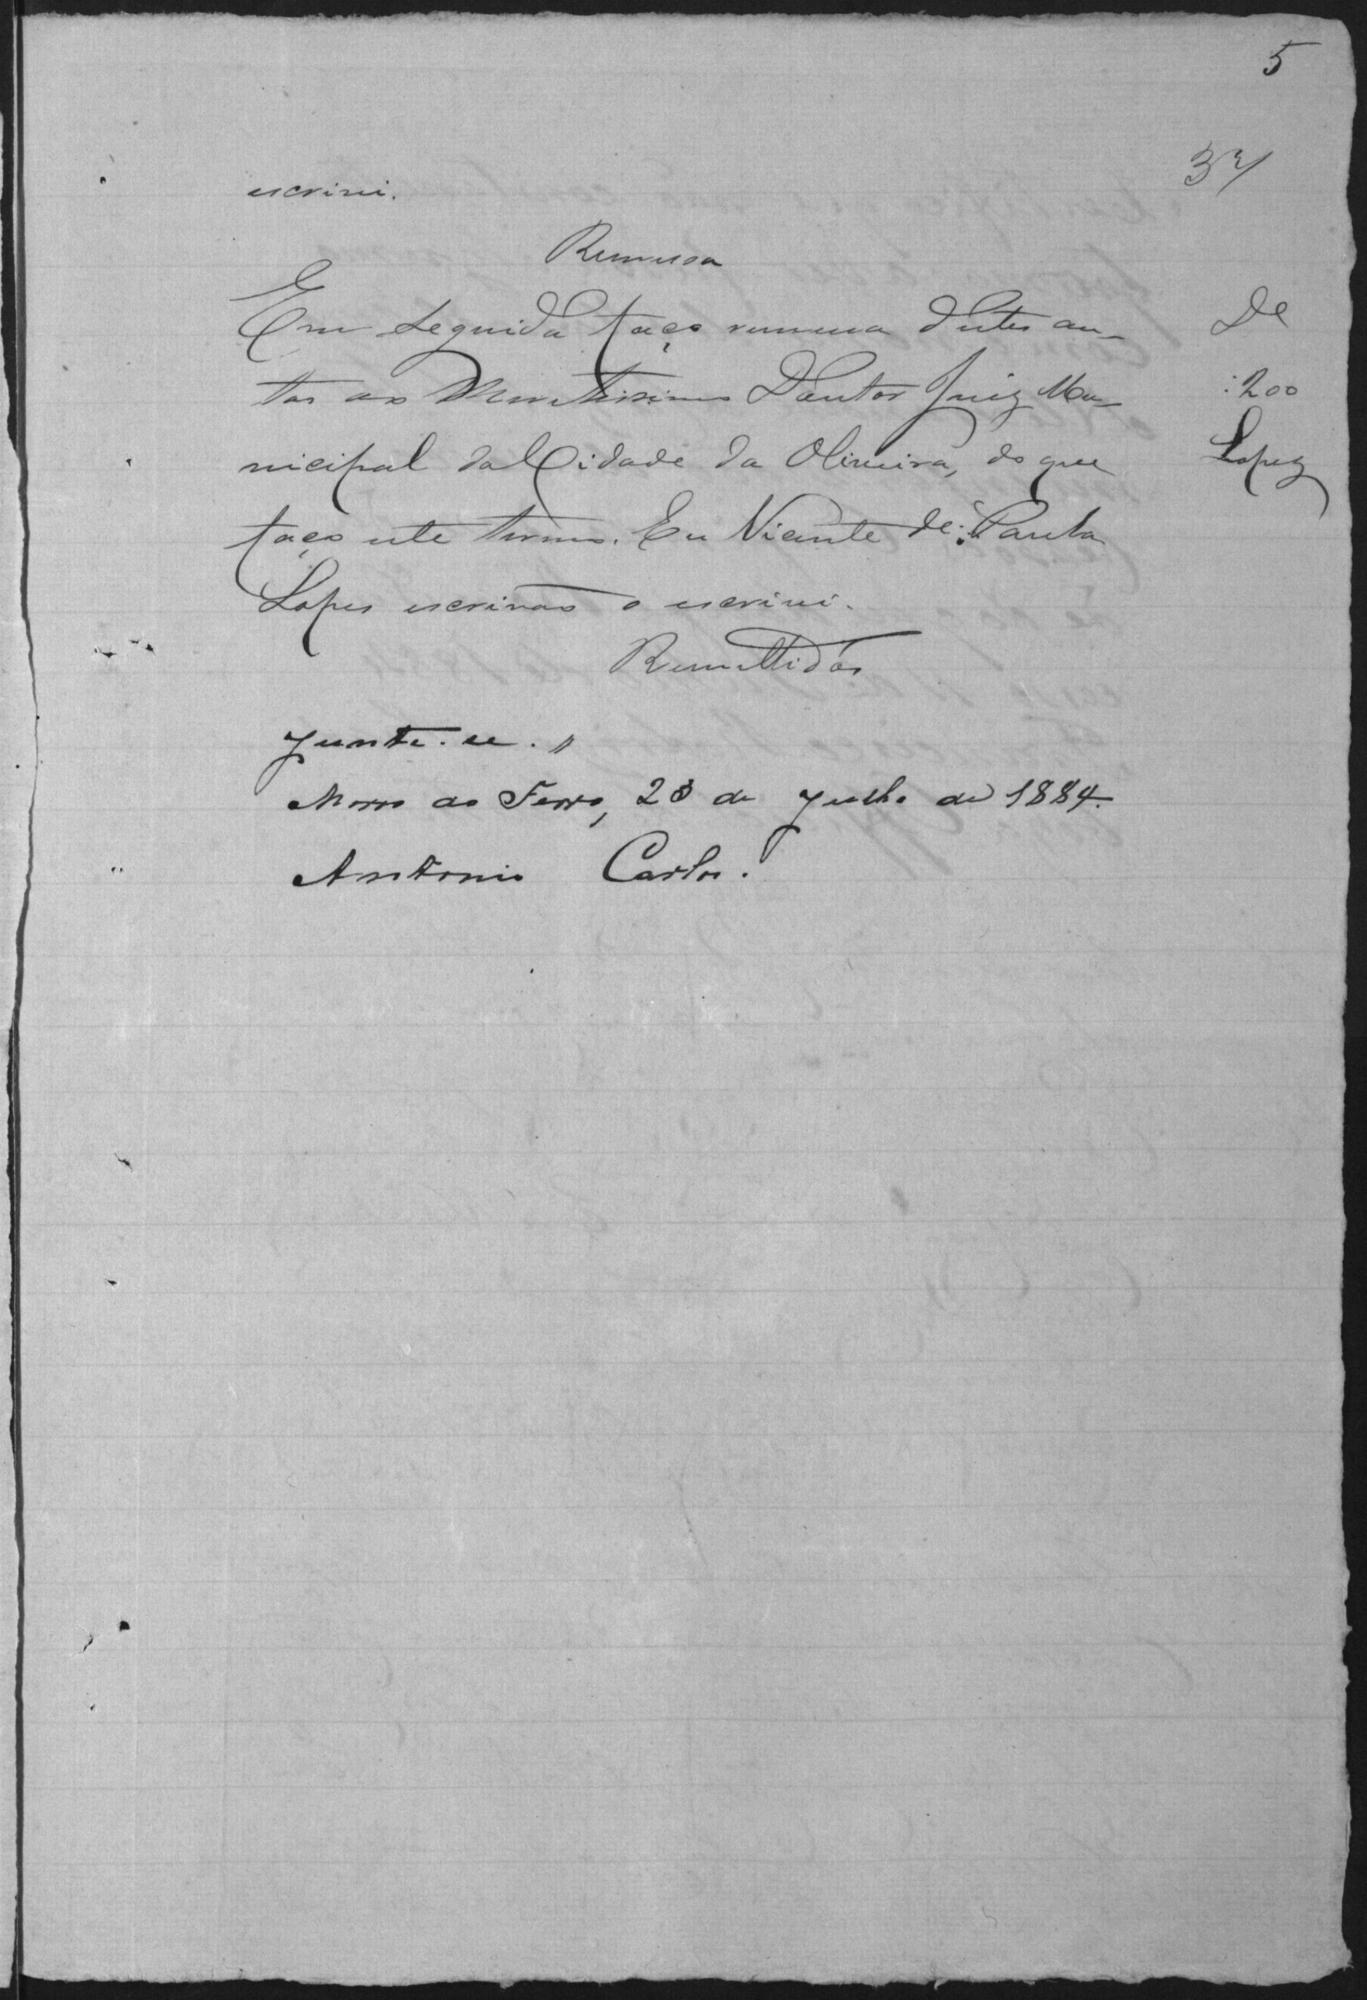 5
37
escrivi.
Remessa
Em seguida faço remessa d'estes au-
tos ao Meretissimo Doutor Juiz Mu-
nicipal da Cidade da Oliveira, do que
faço este termo. Eu Vicente de Paula
Lopes escrivão o escrivi.
De
200
Lopes
Remettidos
Junte-se.
Morro do Ferro, 23 de Julho de 1884.
Antonio Carlos.